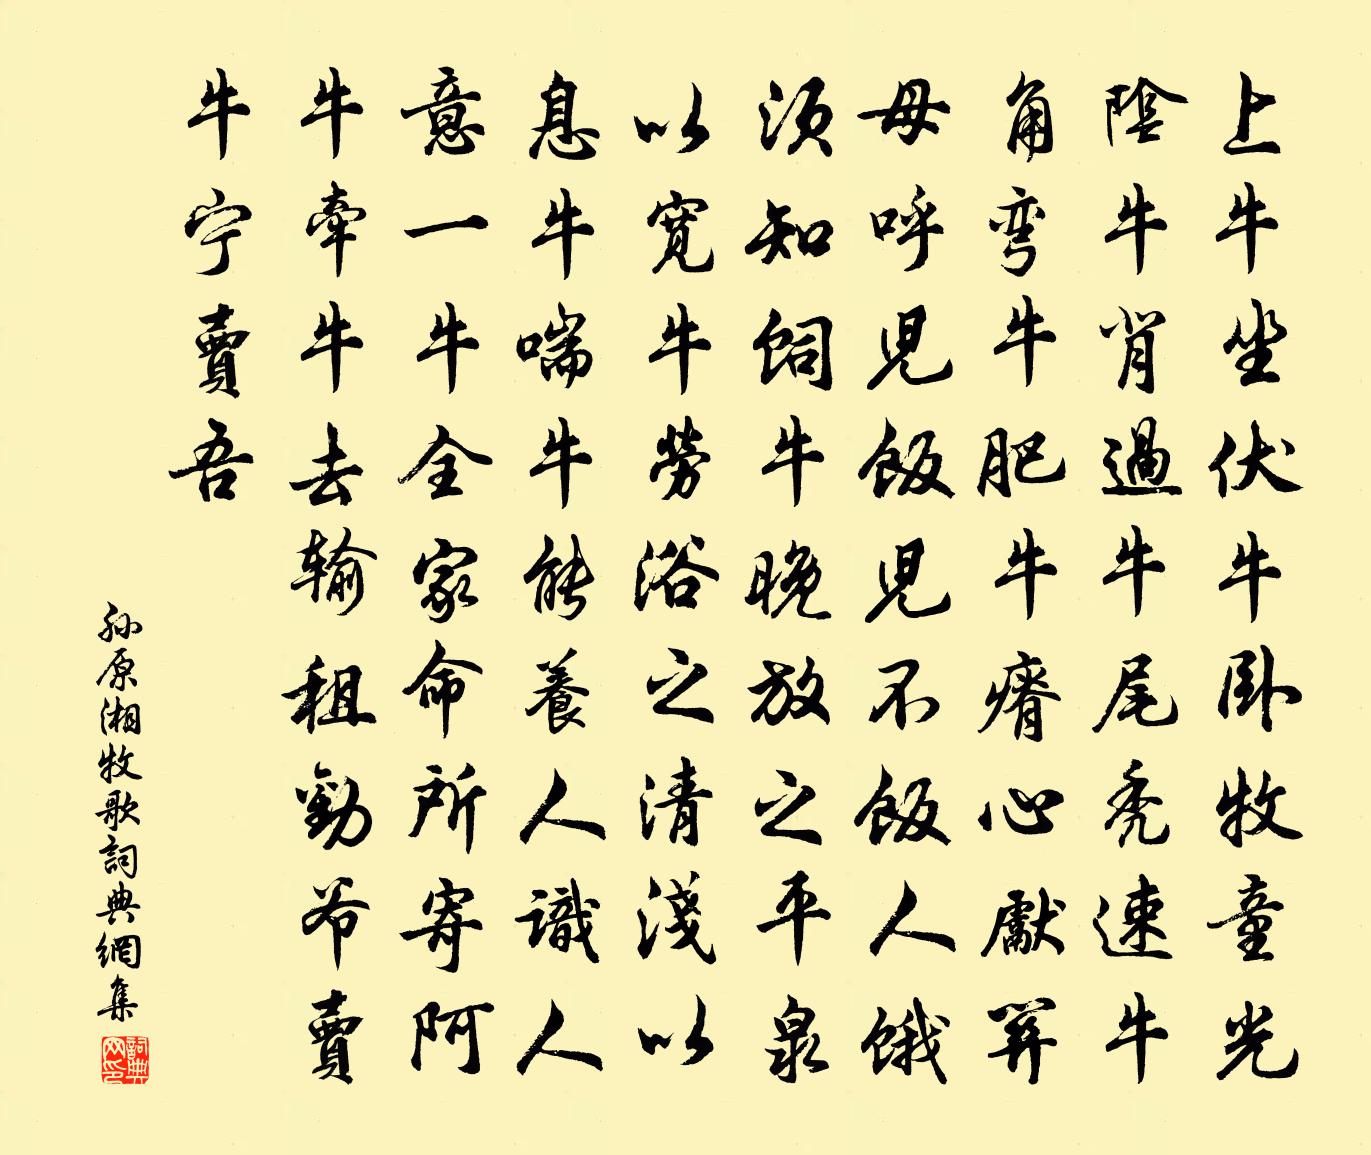 上牛坐伏牛卧牧童光
陰牛背過牛尾秃速牛
角弯牛肥牛瘠心獻
母呼兒飯兒不飯人餓
須知飼牛晚放之平泉
以寬牛勞浴之清淺以
息牛喘牛能養人識人
意一牛全家命所寄阿
牛牽牛去输租勸爷賣
牛宁賣吾
孙原湘牧歌詞典網集
詞典网印